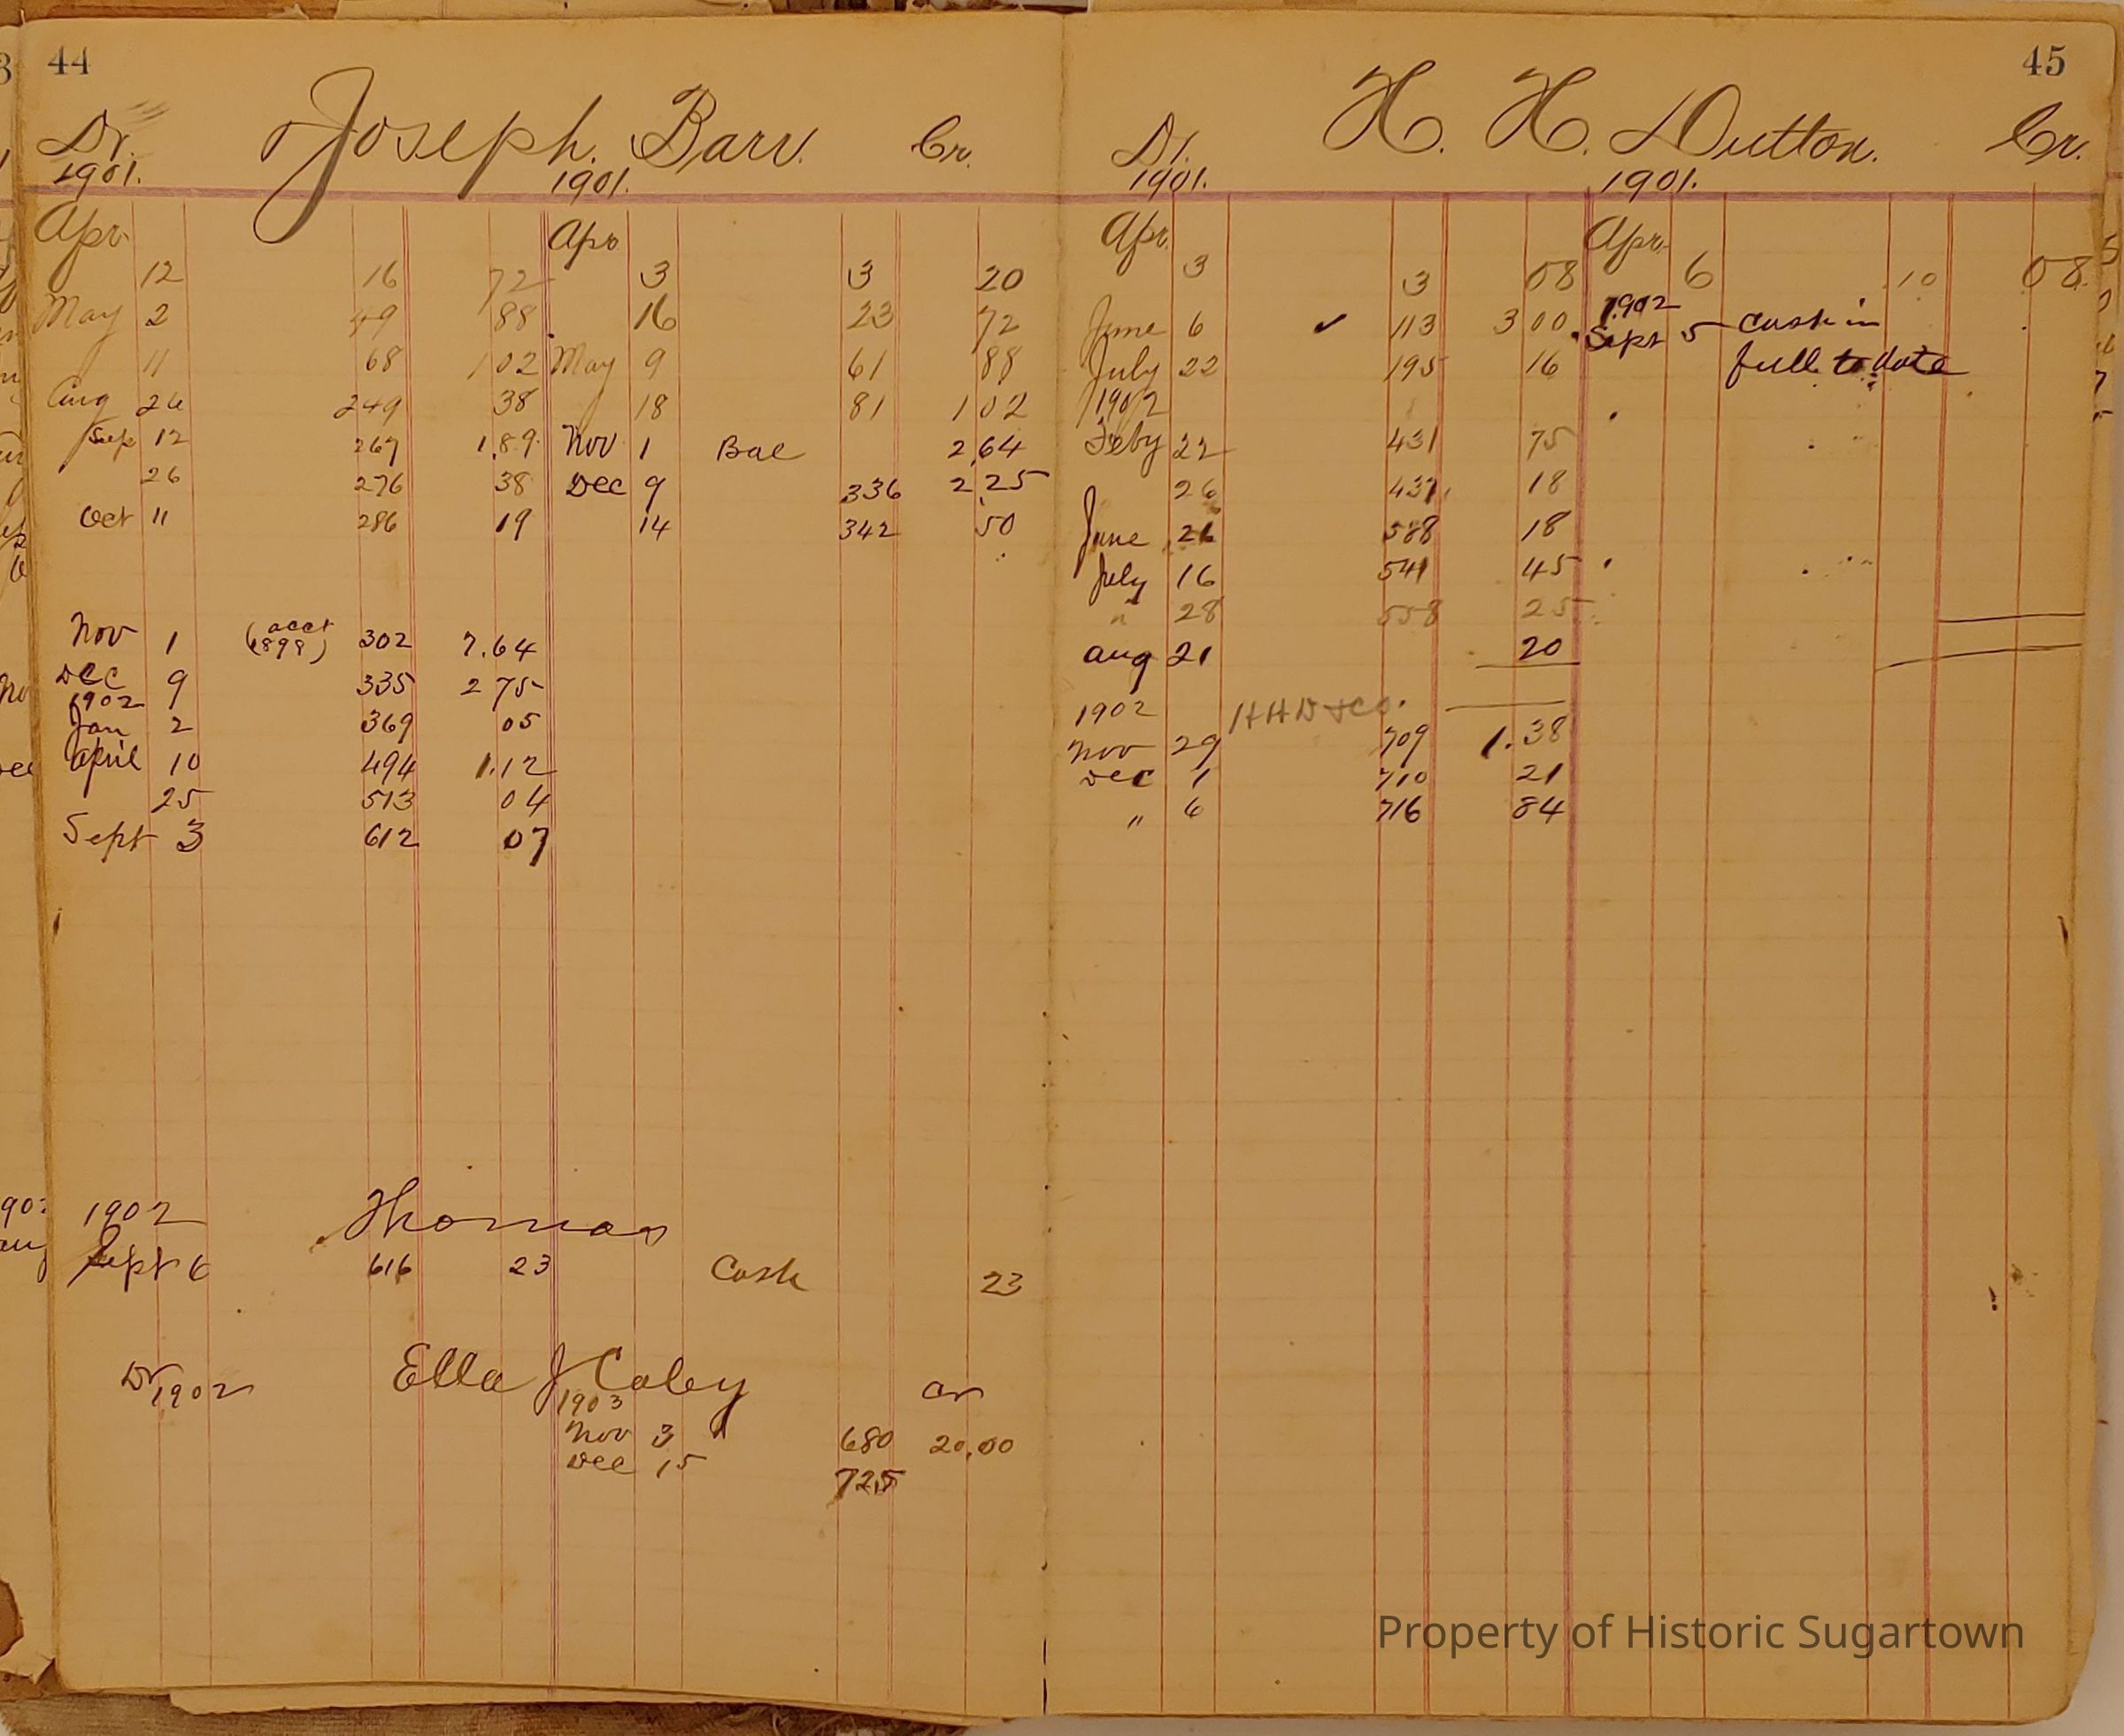 44
Dr. Joseph. Barr. Cr.
1901. 1901.
Apr. Apr
12 16 72 3 3 20
May 2 49 88 16 23 72
11 68 102 May 9 61 88
Aug 26 249 38 18 81 102
Sep 12 267 1.89 Nov 1 Bal 2,64
26 276 38 Dec 9 336 2,25
Oct 11 286 19 14 342 50
Nov 1 (acct 1898) 302 7.64
Dec 9 335 2 75
1902
Jan 2 369 05
April 10 494 1.12
25 513 04
Sept 3 612 07
1902 Thomas
Sept 6 616 23 Cash 23
Dr 1902 Ella J Coley Cr
1903
Nov 3 680 20,00
Dec 15 725
45
Dr. H. H. Dutton. Cr.
1901. 1901.
Apr. Apr.
3 3 08 6 10 08
1902
June 6 ✓ 113 3 00 Sept 5 Cash in
July 22 195 16 full to date
1902
Feby 22 431 75
26 437 18
June 26 588 18
July 16 541 45
" 28 558 25
Aug 21 20
1902 HHD & Co.
Nov 29 709 1.38
Dec 1 710 21
" 6 716 84
Property of Historic Sugartown